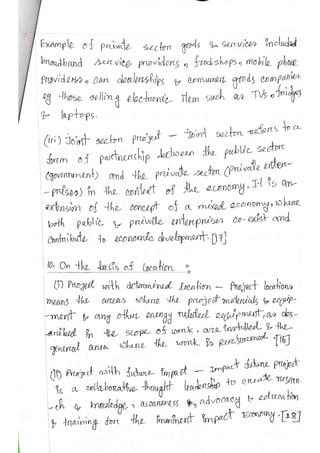 Example of private sector goods & services included
broadband service providers, food shops, mobile phone
providers, car dealerships & consumer goods companies
eg those selling electronic item such as TVs, fridges
& laptops.
(iii) Joint sector project – Joint sector refers to a
form of partnership between the public sector
(government) and the private sector (private enter-
-prises) in the context of the economy. It is an
extension of the concept of a mixed economy, where
both public & private enterprises co-exist and
contribute to economic development. [17]
10. On the basis of location :
(I) Project with determined location – Project locations
means the areas where the project materials & equip-
-ment & any other energy related equipment, as des-
-cribed in the scope of work, are installed & the
general area where the work is performed. [18]
(II) Project with future impact – Impact future project
is a collaborative thought leadership to create resear-
-ch & knowledge, awareness & advocacy & education
& training for the imminent impact Economy. [18]